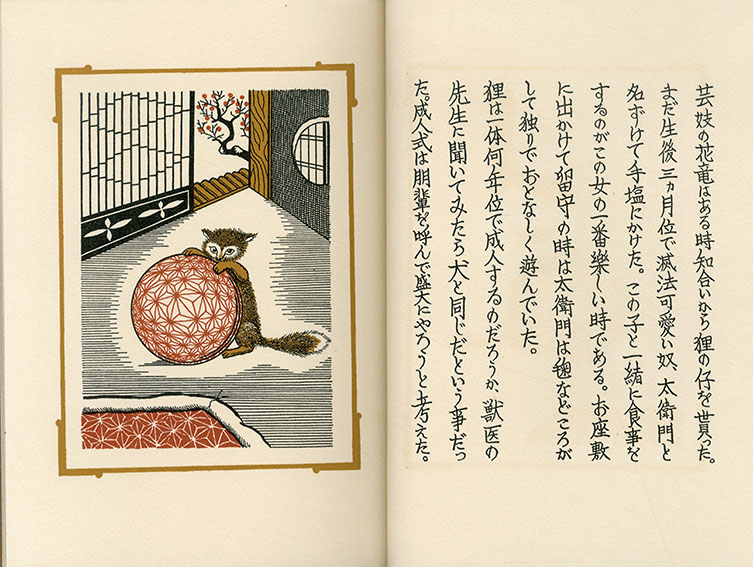 芸妓の花竜はある時知合いから狸の仔を貰った。
まだ生後三ヵ月位で滅法可愛い奴、太衛門と
名ずけて手塩にかけた。この子と一緒に食事を
するのがこの女の一番楽しい時である。お座敷
に出かけて留守の時は太衛門は毬などころが
して独りでおとなしく遊んでいた。
狸は一体何年位で成人するのだろうか、獣医の
先生に聞いてみたら犬と同じだという事だっ
た。成人式は朋輩を呼んで盛大にやろうと考えた。